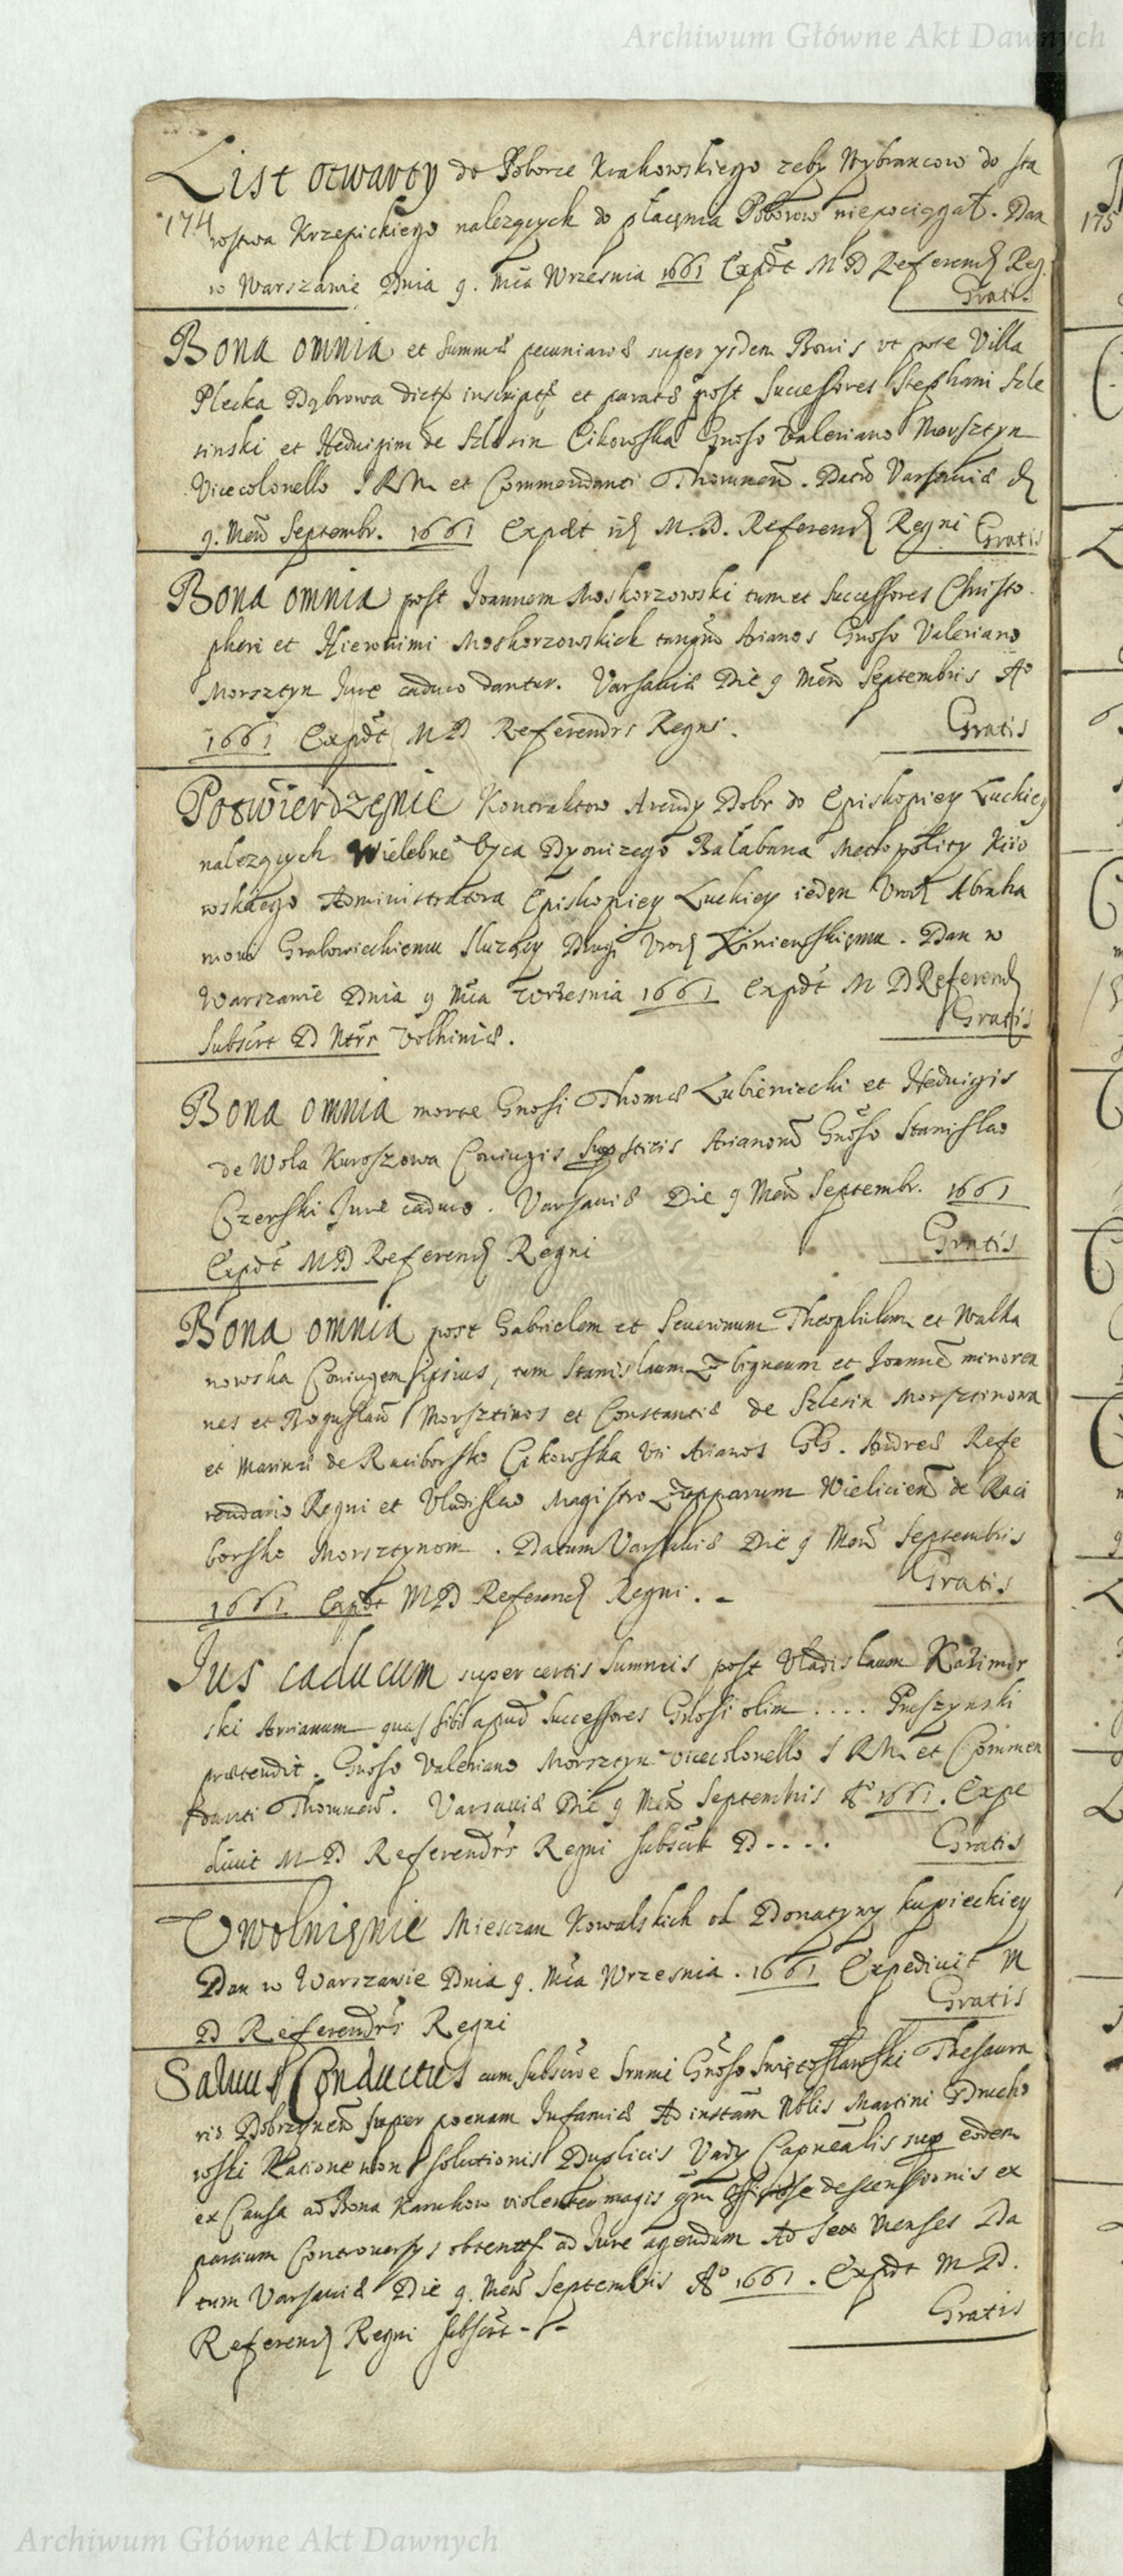 Archiwum Główne Akt Dawnych
List otwarty do Poborce Krakowskiego zeby Wybrancow do sta
174
rostwa Krzepickiego nalezących do płacęnia Poborow niepociągał. Dan
w Warszawie Dnia 9. Mca Wrzesnia 1661 Expdt MD Referend Reg.
Gratis
Bona omnia et Summas pecuniarias super ysdem Bonis vt pote Villa
Plecka Dąbrowa dicta inscriptas et paratas post Successores Stephani Szle
sinski et Heduigim de Szlesin Cikowska Gnoso Valeriano Morsztyn
Vicecolonello SRM et Commendanti Thorunen. Datum Varsauiae d
9. Men Septembr. 1661 Expdt M.D. Referend Regni Gratis
Bona omnia post Joannem Moskorzowski tum et Successores Christo
pheri et Hieronimi Moskorzowskich tanqm Arianos Gnoso Valeriano
Morsztyn Jure caduco dantur. Varsauiae Die 9 Men Septembris Ao
1661 Expdt MD Referendrs Regni.
Gratis
Potwierdzęnie Kontraktow Arendy Dobr do Episkopiey Luckiey
nalezących Wielebne Oyca Dyonizego Bałabana Metropolity Kiio
wskiego Administratora Episkopiey Luckiey ieden Urod Abraha
mowi Grabowieckiemu Sluzący Drugi Urod Liniewskięmu. Dan w
Warszawie Dnia 9 Mca Wrzesnia 1661 Expdt M D Referend
Gratis
Subscrt D Ntrs Volhiniae.
Bona omnia morte Gnosi Thomae Lubieniecki et Heduigis
de Wola Kuroszowa Coniugis Supstitis Arianorum Gnoso Stanislao
Czerski Jure caduco. Varsauiae Die 9 Men Septembr. 1661
Expdt MD Referend Regni
Gratis
Bona omnia post Gabrielem et Seuerinum Theophilum et Walka
nowska Coniugem ipsius, tum Stanislaum Zbigneum et Joannem minoren
nes et Boguslaum Morsztinos et Constantiae de Szlesin Morsztinowa
et Marinae de Raciborsko Cikowska Vti Arianos GG. Andreae Refe
rendario Regni et Vladislao Magistro Zupparum Wielicien de Raci
borsko Morsztynom. Datum Varsauiae Die 9 Men Septembris
1661. Expdt MD Referend Regni. -
Gratis
Jus caducum super certis Summis post Vladislaum Kazimir
ski Arrianum quas sibi apud Successores Gnosi olim .... Pruszynski
praetendit. Gnoso Valeriano Morsztyn Vicecolonello SRM et Commen
danti Thorunen. Varsauiae Die 9 Men Septembris Ao 1661. Expe
diuit MD Referendrs Regni Subscrt D....
Gratis
Uwolnięnie Miesczan Kowalskich od Donatywy kupieckiey
Dan w Warszawie Dnia 9. Mca Wrzesnia. 1661 Expediuit M
Gratis
D Referendrs Regni
Saluus Conductus cum Subscrone Srnmi Gnoso Swiętosławski Thesaura
rio Dobrzynen super poenam Infamiae Ad instam Nblis Martini Drucho
wski Ratione non solutionis Duplicis Vady Capnealis sup eodem
ex Causa ad Bona Karnkow violenter magis qm Officiose descensionis ex
partium Controuersys obtent ad Jure agendum Ad Sex Menses Da
tum Varsauiae Die 9. Men Septembris Ao 1661. Expdt MD.
Referend Regni Subscrt
Gratis
175
Archiwum Główne Akt Dawnych